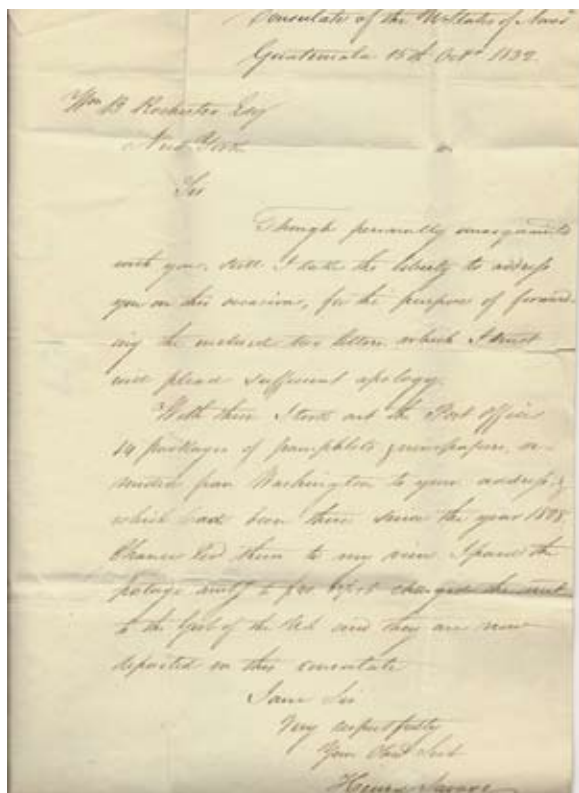 Consulate of the U States of Ama
Guatemala 15th Octr 1832.
Wm B Rochester Esq
New York
Sir
Though personally unacquainted
with you, still I take the liberty to address
you on this occasion, for the purpose of forward-
ing the inclosed two letters which I trust
will plead sufficient apology.
With them I took out the Post Office
14 packages of pamphlets & newspapers,
from Washington to your address, &
which had been there since the year 1828
Chance led them to my view I paid the
postage charged
to the Govt of the and they are now
deposited in this consulate
I am Sir
Very respectfully
Your Obt Servt
Henry Savage